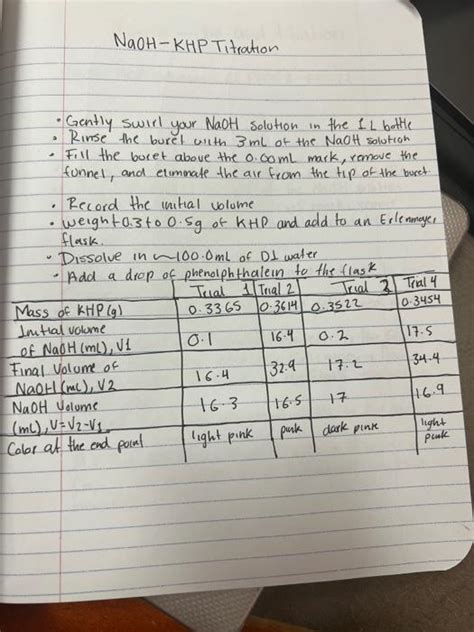 NaOH-KHP Titration
• Gently swirl your NaOH solution in the 1L bottle
• Rinse the buret with 3mL of the NaOH solution
• Fill the buret above the 0.00mL mark, remove the
funnel, and eliminate the air from the tip of the buret.
• Record the initial volume
• weight 0.3 to 0.5g of KHP and add to an Erlenmeyer
flask.
• Dissolve in ~100.0mL of DI water
• Add a drop of phenolphthalein to the flask
Trial 1 Trial 2 Trial 3 Trial 4
Mass of KHP (g) 0.3365 0.3614 0.3522 0.3454
Initial volume
of NaOH (mL), V1 0.1 16.4 0.2 17.5
Final Volume of
NaOH (mL), V2 16.4 32.9 17.2 34.4
NaOH Volume
(mL), V=V2-V1 16.3 16.5 17 16.9
Color at the end point light pink pink dark pink light pink